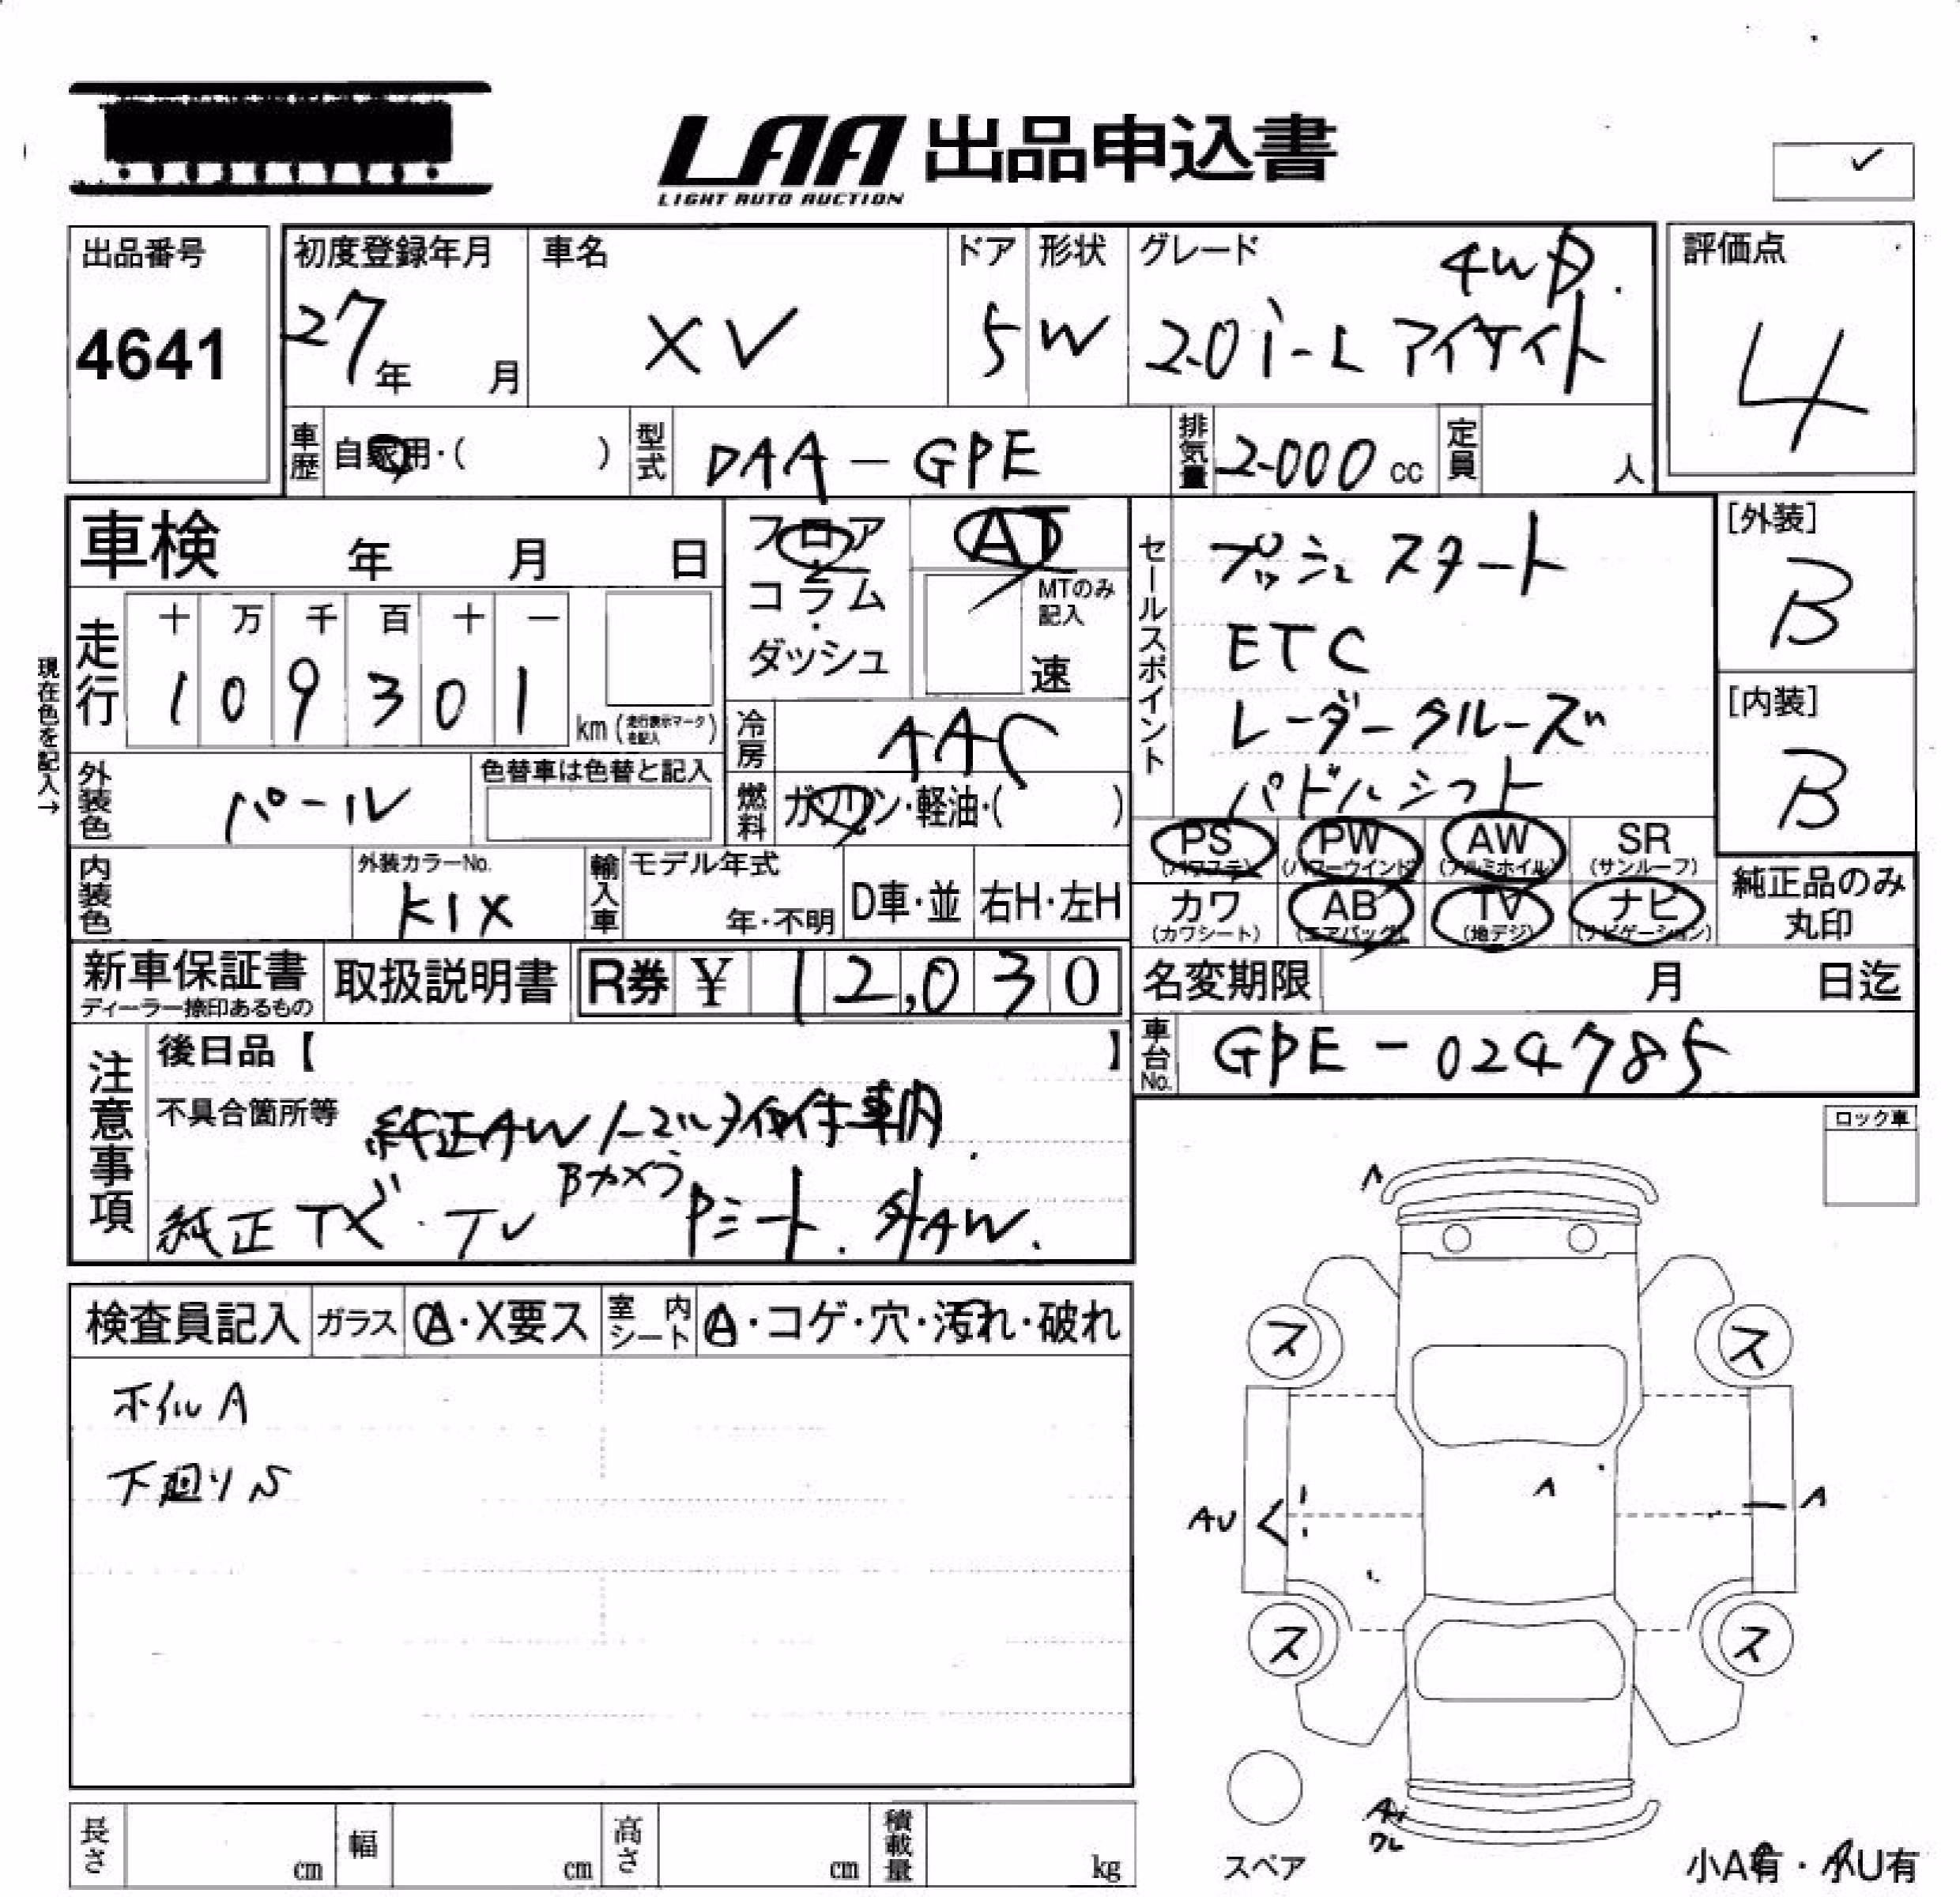 LAA 出品申込書
LIGHT AUTO AUCTION
✓
出品番号
4641
初度登録年月
27年 月
車名
XV
ドア
5
形状
W
グレード
4WD.
2.0i-L アイサイト
評価点
4
車歴 自家用・( )
型式 DAA-GPE
排気量 2000 cc
定員 人
車検 年 月 日
フロア
コラム
ダッシュ
AT
MTのみ
記入
速
セールスポイント
プッシュスタート
ETC
レーダークルーズ
パドルシフト
[外装]
B
[内装]
B
現在色を記入→
走行
十 万 千 百 十 一
1 0 9 3 0 1
km (走行表示マークを記入)
冷房 AAC
外装色 パール
色替車は色替と記入
燃料 ガソリン・軽油・( )
PS (パワステ)
PW (パワーウインド)
AW (アルミホイル)
SR (サンルーフ)
カワ (カワシート)
AB (エアバッグ)
TV (地デジ)
ナビ (ナビゲーション)
純正品のみ
丸印
内装色
外装カラーNo.
K1X
輸入車
モデル年式
年・不明
D車・並
右H・左H
新車保証書
ディーラー捺印あるもの
取扱説明書
R券 ¥ 12,030
名変期限 月 日迄
車台No. GPE-024785
注意事項
後日品【 】
不具合箇所等
純正AWノーマルタイヤ付車内.
純正TV Bカメラ Pシート. 外AW.
ロック車
検査員記入
ガラス A・X要ス
室内シート A・コゲ・穴・汚れ・破れ
ホイルA
下廻りS
A
ス
ス
AU
A
A
ス
ス
スペア
ワレ
小A有・小U有
長さ cm
幅 cm
高さ cm
積載量 kg